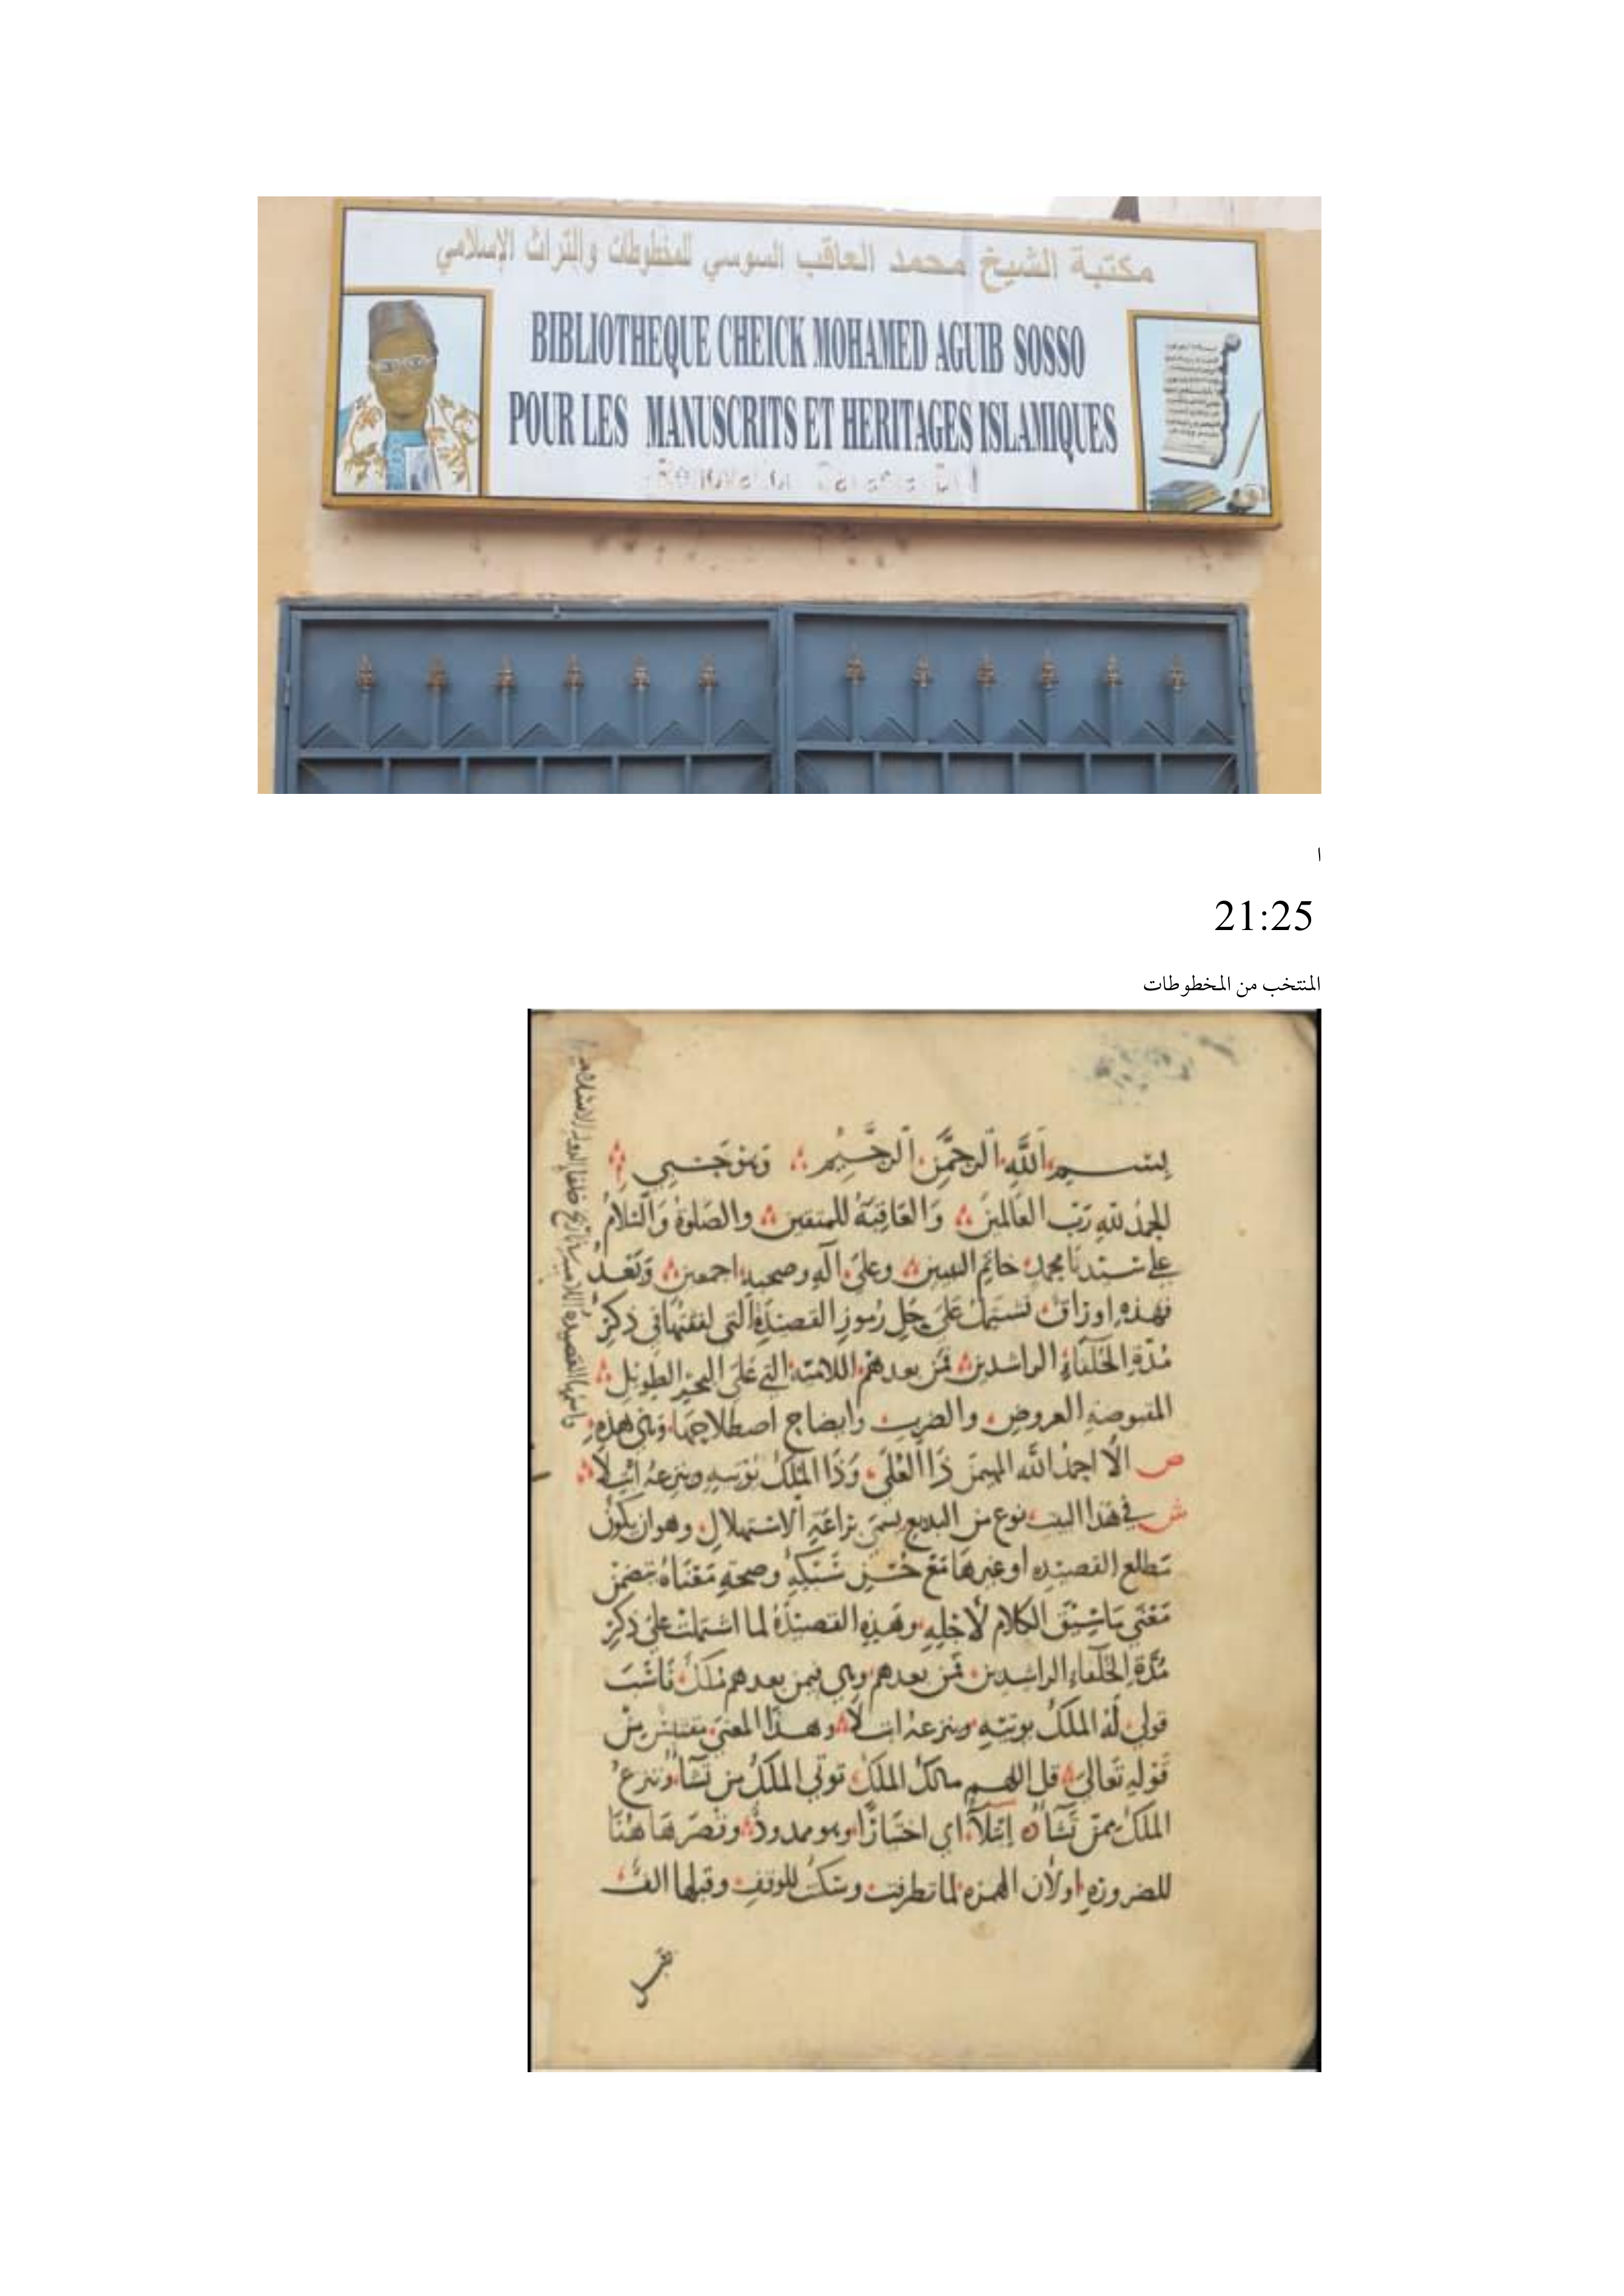 مكتبة الشيخ محمد العاقب السوسي للمخطوطات والتراث الإسلامي
BIBLIOTHEQUE CHEICK MOHAMED AGUIB SOSSO
POUR LES MANUSCRITS ET HERITAGES ISLAMIQUES
ا
21:25
المنتخب من المخطوطات
بسم الله الرحمن الرحيم وهو حسبي
الحمد لله رب العالمين والعاقبة للمتقين والصلوة والسلام
على سيدنا محمد خاتم النبيين وعلى آله وصحبه اجمعين وبعد
فهذه اوراق تشتمل على حل رموز القصيدة التي لفقتها في ذكر
مدة الخلفاء الراشدين فمن بعدهم اللامية التي على البحر الطويل
المقبوضة العروض والضرب وايضاح اصطلاحها وهي هذه
ص الا احمد الله المهيمن ذا العلى وذا الملك يؤتيه وينزعه ابتلا
ش في هذا البيت نوع من البديع يسمى براعة الاستهلال وهو ان يكون
مطلع القصيدة او غيرها مع حسن سبكه وصحة معناه تضمن
معنى ما سيق الكلام لاجله وهذه القصيدة لما اشتملت على ذكر
مدة الخلفاء الراشدين فمن بعدهم وهي فيمن بعدهم ملك ناسب
قولي له الملك يوتيه وينزعه ابتلا وهذا المعنى مقتبس من
قوله تعالى قل اللهم مالك الملك توتي الملك من تشاء وتنزع
الملك ممن تشاء ابتلا اي اختبارا وهو ممدود وقصر هاهنا
للضرورة او لان الهمزة لما تطرفت وسكنت للوقف وقبلها الف